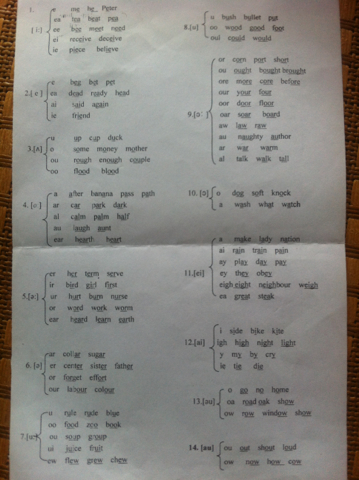 1.
e me he Peter
ea tea beat pea
[i:] ee bee meet need
ei receive deceive
ie piece believe
e bee bet pet
2.[e] ea dead ready head
ai said again
ie friend
u up cup duck
3.[ʌ] o some money mother
ou rough enough couple
oo flood blood
a after banana pass path
4. ar car park dark
al calm palm half
au laugh aunt
ear hearth heart
er her term serve
ir bird girl first
5. ur hurt burn nurse
or word work worm
ear heard learn earth
ar collar sugar
6. [ə] er center sister father
or forget effort
our labour colour
u rule rude blue
oo food zoo book
7. ou soup group
ui juice fruit
ew flew grew chew
u bush bullet put
8.[u] oo wood good foot
oul could would
or corn port short
ou ought bought brought
ore more core before
our your four
oor door floor
9. oar soar board
aw law raw
au naughty author
ar war warm
al talk walk tall
10. o dog soft knock
a wash what watch
a make lady nation
ai rain train pain
ay play day pay
11.[ei] ey they obey
eigh eight neighbour weigh
ea great steak
i side bike kite
12.[ai] igh high night light
y my by cry
ie tie die
o go no home
13. oa road oak show
ow row window show
14. [au] ou out shout loud
ow now how cow